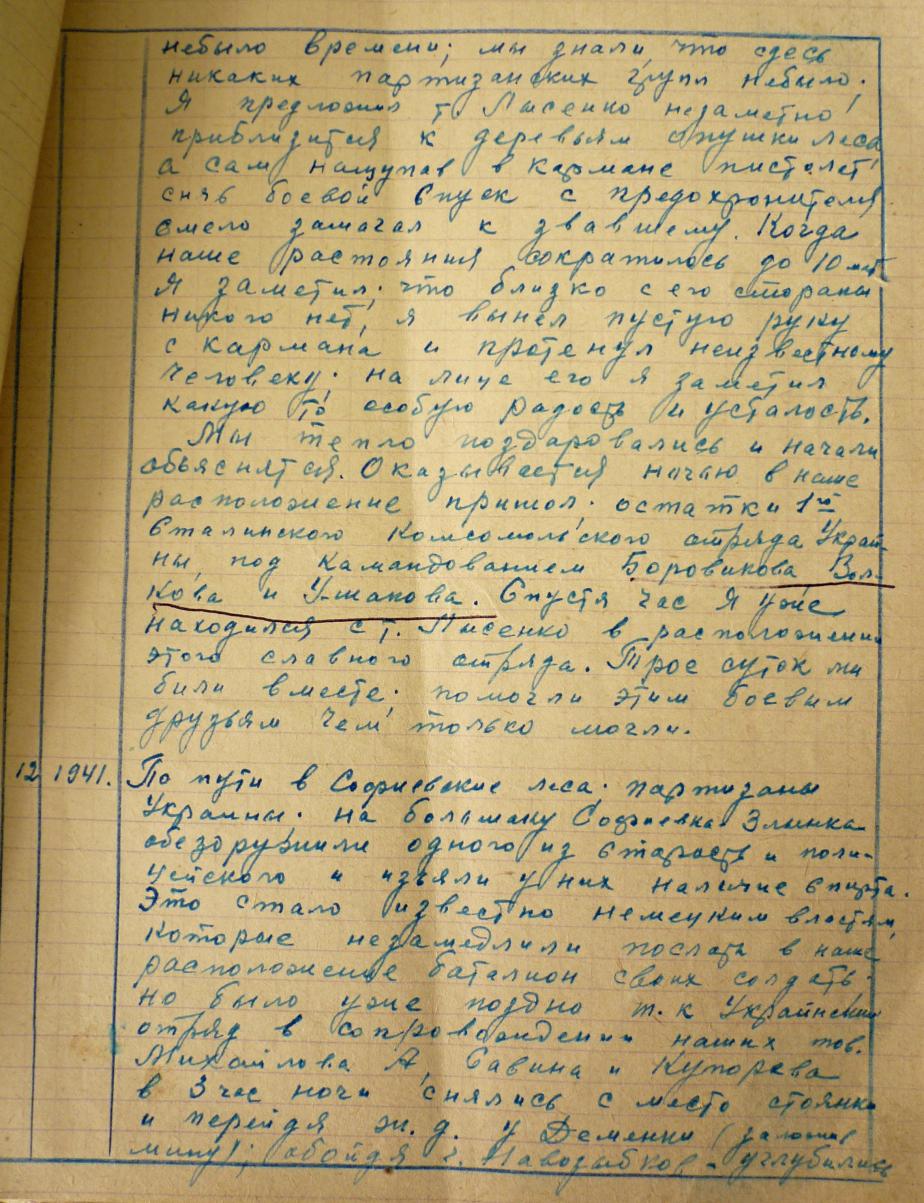 небыло времени; мы знали, что здесь
никаких партизанских групп небыло.
Я предложил т. Лысенко незаметно
приблизится к деревьям опушки леса
а сам нащупав в кармане пистолет
сняв боевой спуск с предохронителя
смело зашагал к звавшему. Когда
наше растояния сократилось до 10 мет
Я заметил, что близко с его стораны
никого нет, я вынел пустую руку
с кармана и протенул неизвестному
человеку; на лице его я заметил
какую то особую радость и усталость.
Мы тепло поздаровались и начали
обьяснятся. Оказывается ночью в наше
расположение пришол; остатки 1го
Сталинского Комсомольского отряда Украи-
ны, под камандованием Боровикова Вол-
кова и Ушакова. Спустя час я уже
находился с т. Лысенко в расположении
этого славного отряда. Трое суток ми
били вместе; помогли этим боевым
друзьям чем только могли.
12 1941. По пути в Софиевские леса; партизаны
Украины. на большаку Софиевка-Злынка
обезоружили одного из старость и поли-
цейского и изьяли у них наличие спирта.
Это стало известно немецким властям,
которые незамедлили послать в наше
расположение баталион своих солдать;
но было уже поздно т.к Украинский
отряд в сопровождении наших тов.
Михайлова А, Савина и Купорева
в 3 час ночи снялись с место стоянки
и перейдя ж.д. у Деменки (заложив
мину); обойдя г. Навозыбков - углубились